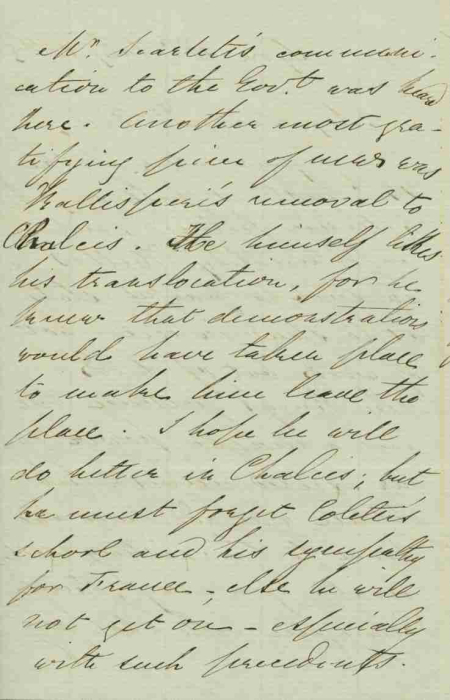 Mr Scarlett's communi-
cation to the Govt was heard
here. Another most gra-
tifying piece of news was
Kallisperi's removal to
Chalcis. He himself likes
his translocation, for he
knew that demonstrations
would have taken place
to make him leave the
place. I hope he will
do better in Chalcis; but
he must forget Coletti's
school and his sympathy
for France - else he will
not get on - especially
with such precedents.